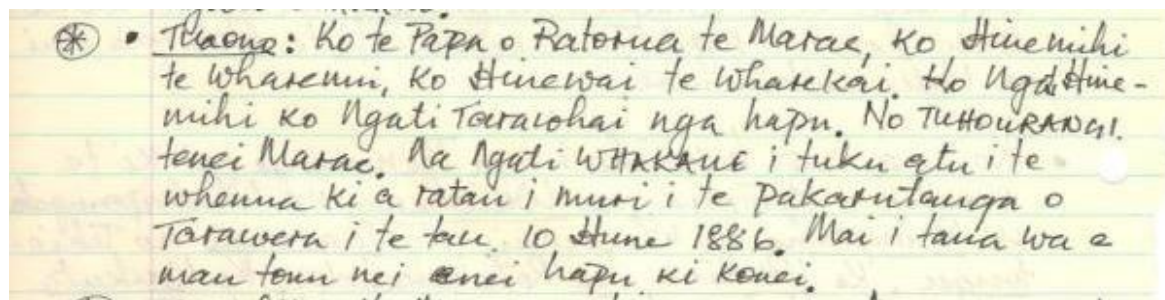 • Thaona: Ko te Papa o Ratorua te Marae, Ko Hinemihi
te Wharenui, Ko Hinewai te Wharekai. Ko Ngati Hine-
mihi ko Ngati Tarawhai nga hapu. No TUHOURANGI.
tenei Marae. Na Ngati WHAKAUE i tuku atu i te
whenua ki a ratau i muri i te pakarutanga o
Tarawera i te tau. 10 Hune 1886. Mai i taua wa e
mau tonu nei enei hapu ki konei.